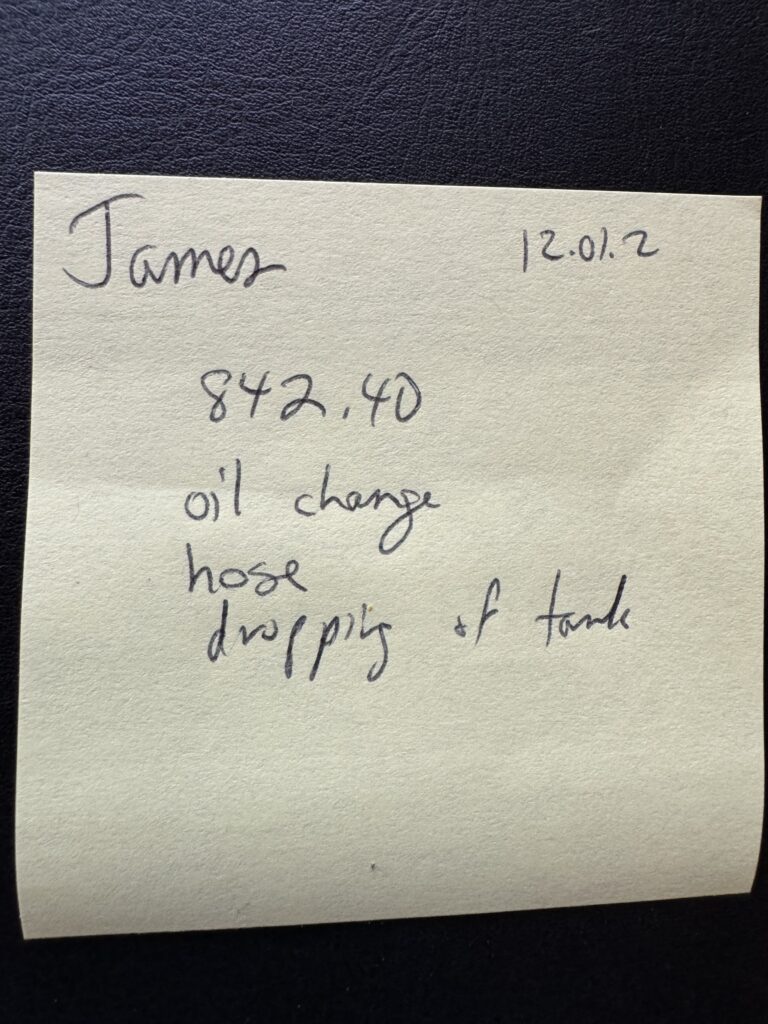 James 12.01.2
842.40
oil change
hose
dropping of tank